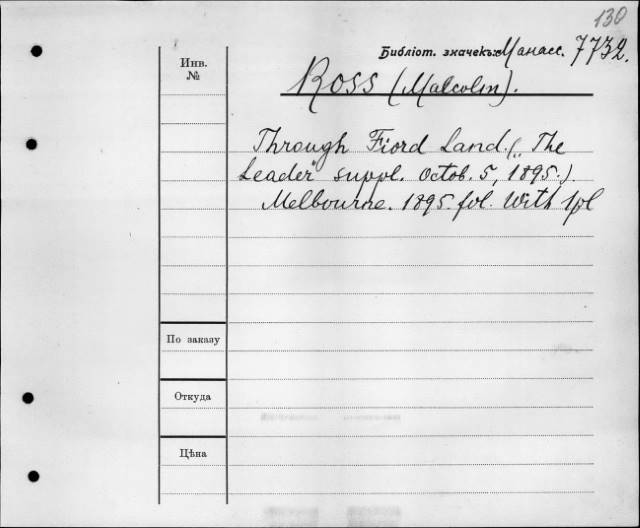 130
Библіот. значекъ: Манасс. 7732.
Инв.
№
Ross (Malcolm).
Through Fiord Land. („The
Leader" suppl. Octob. 5, 1895.).
Melbourne. 1895. fol. With 1 pl
По заказу
Откуда
Цѣна